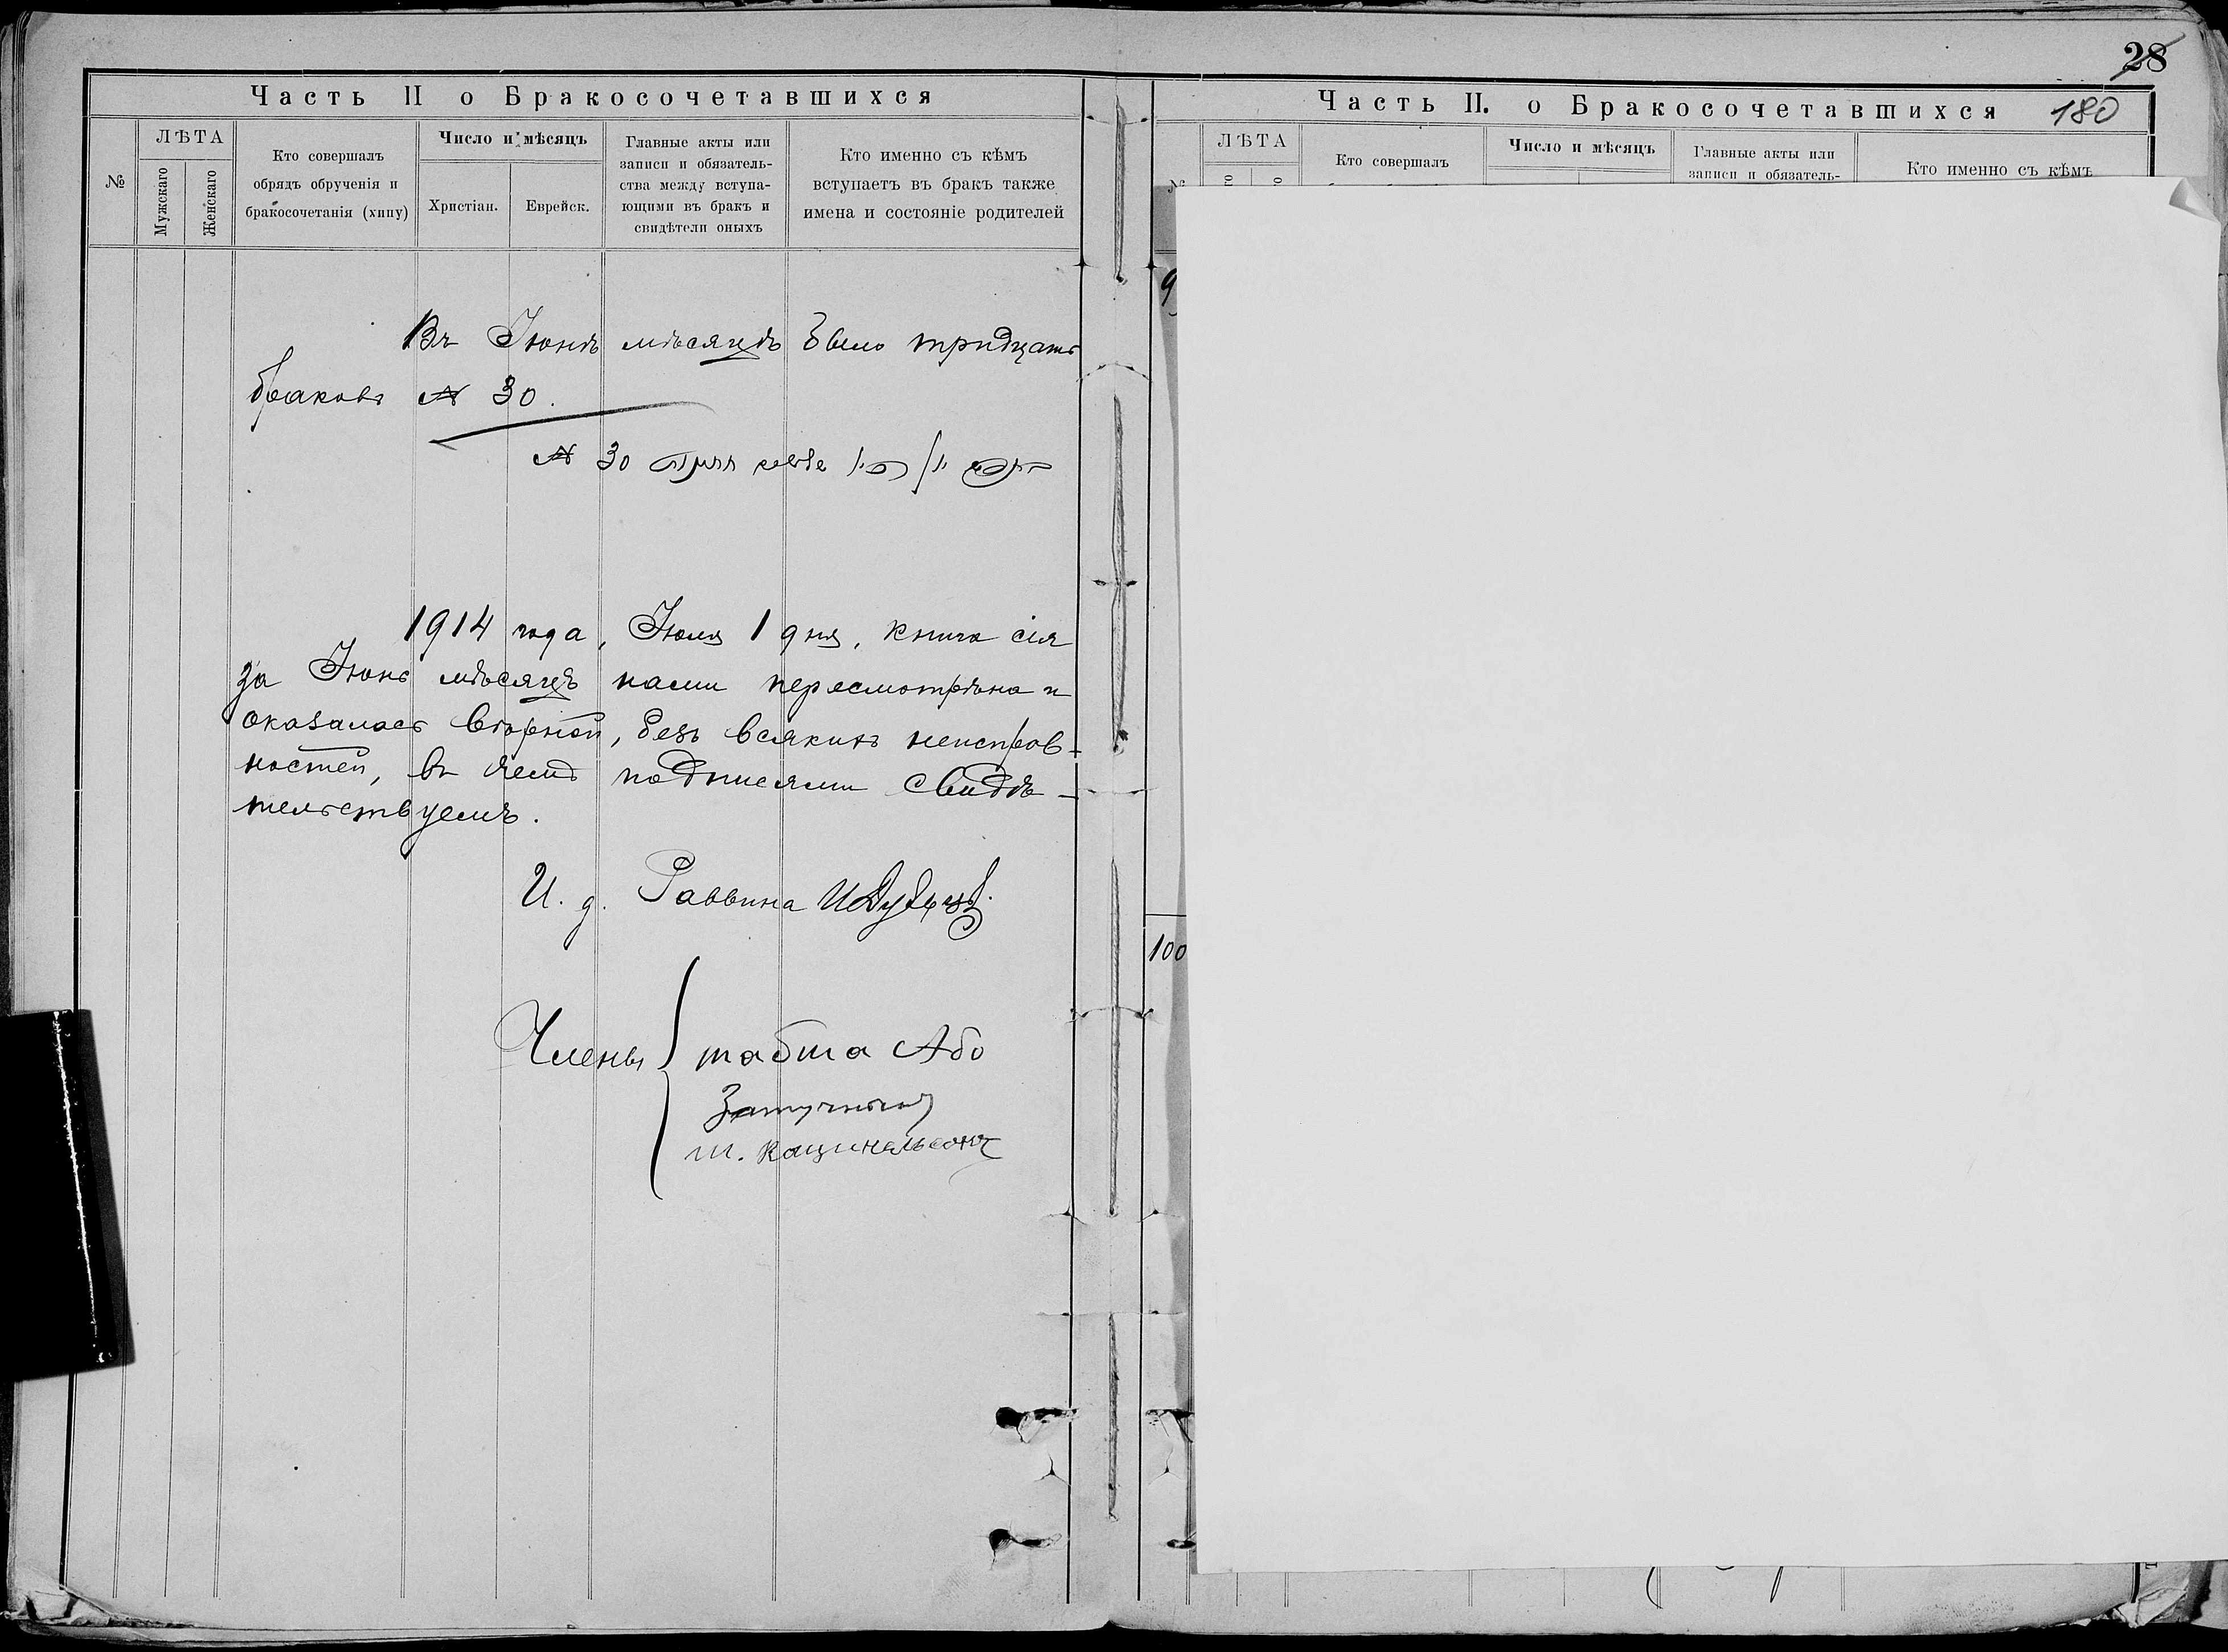 28
Часть II о Бракосочетавшихся
№
ЛѢТА
Мужскаго
Женскаго
Кто совершалъ
обрядъ обрученія и
бракосочетанія (хипу)
Число и мѣсяцъ
Христіан.
Еврейск.
Главные акты или
записи и обязатель-
ства между вступа-
ющими въ бракъ и
свидѣтели оныхъ
Кто именно съ кѣмъ
вступаетъ въ бракъ также
имена и состояніе родителей
Въ Іюнѣ мѣсяцѣ было тридцать
браковъ № 30.
№ 30
1914 года, Іюля 1 дня, книга сія
за Іюнь мѣсяцъ нами пересмотрѣна и
оказалась вѣрной, безъ всякихъ неисправ-
ностей, въ чемъ подписями свидѣ-
тельствуемъ.
И. д. Раввина
Члены
Або
ш. каценельсонъ
Часть II. о Бракосочетавшихся
180
ЛѢТА
Кто совершалъ
Число и мѣсяцъ
Главные акты или
записи и обязатель-
Кто именно съ кѣмъ
100